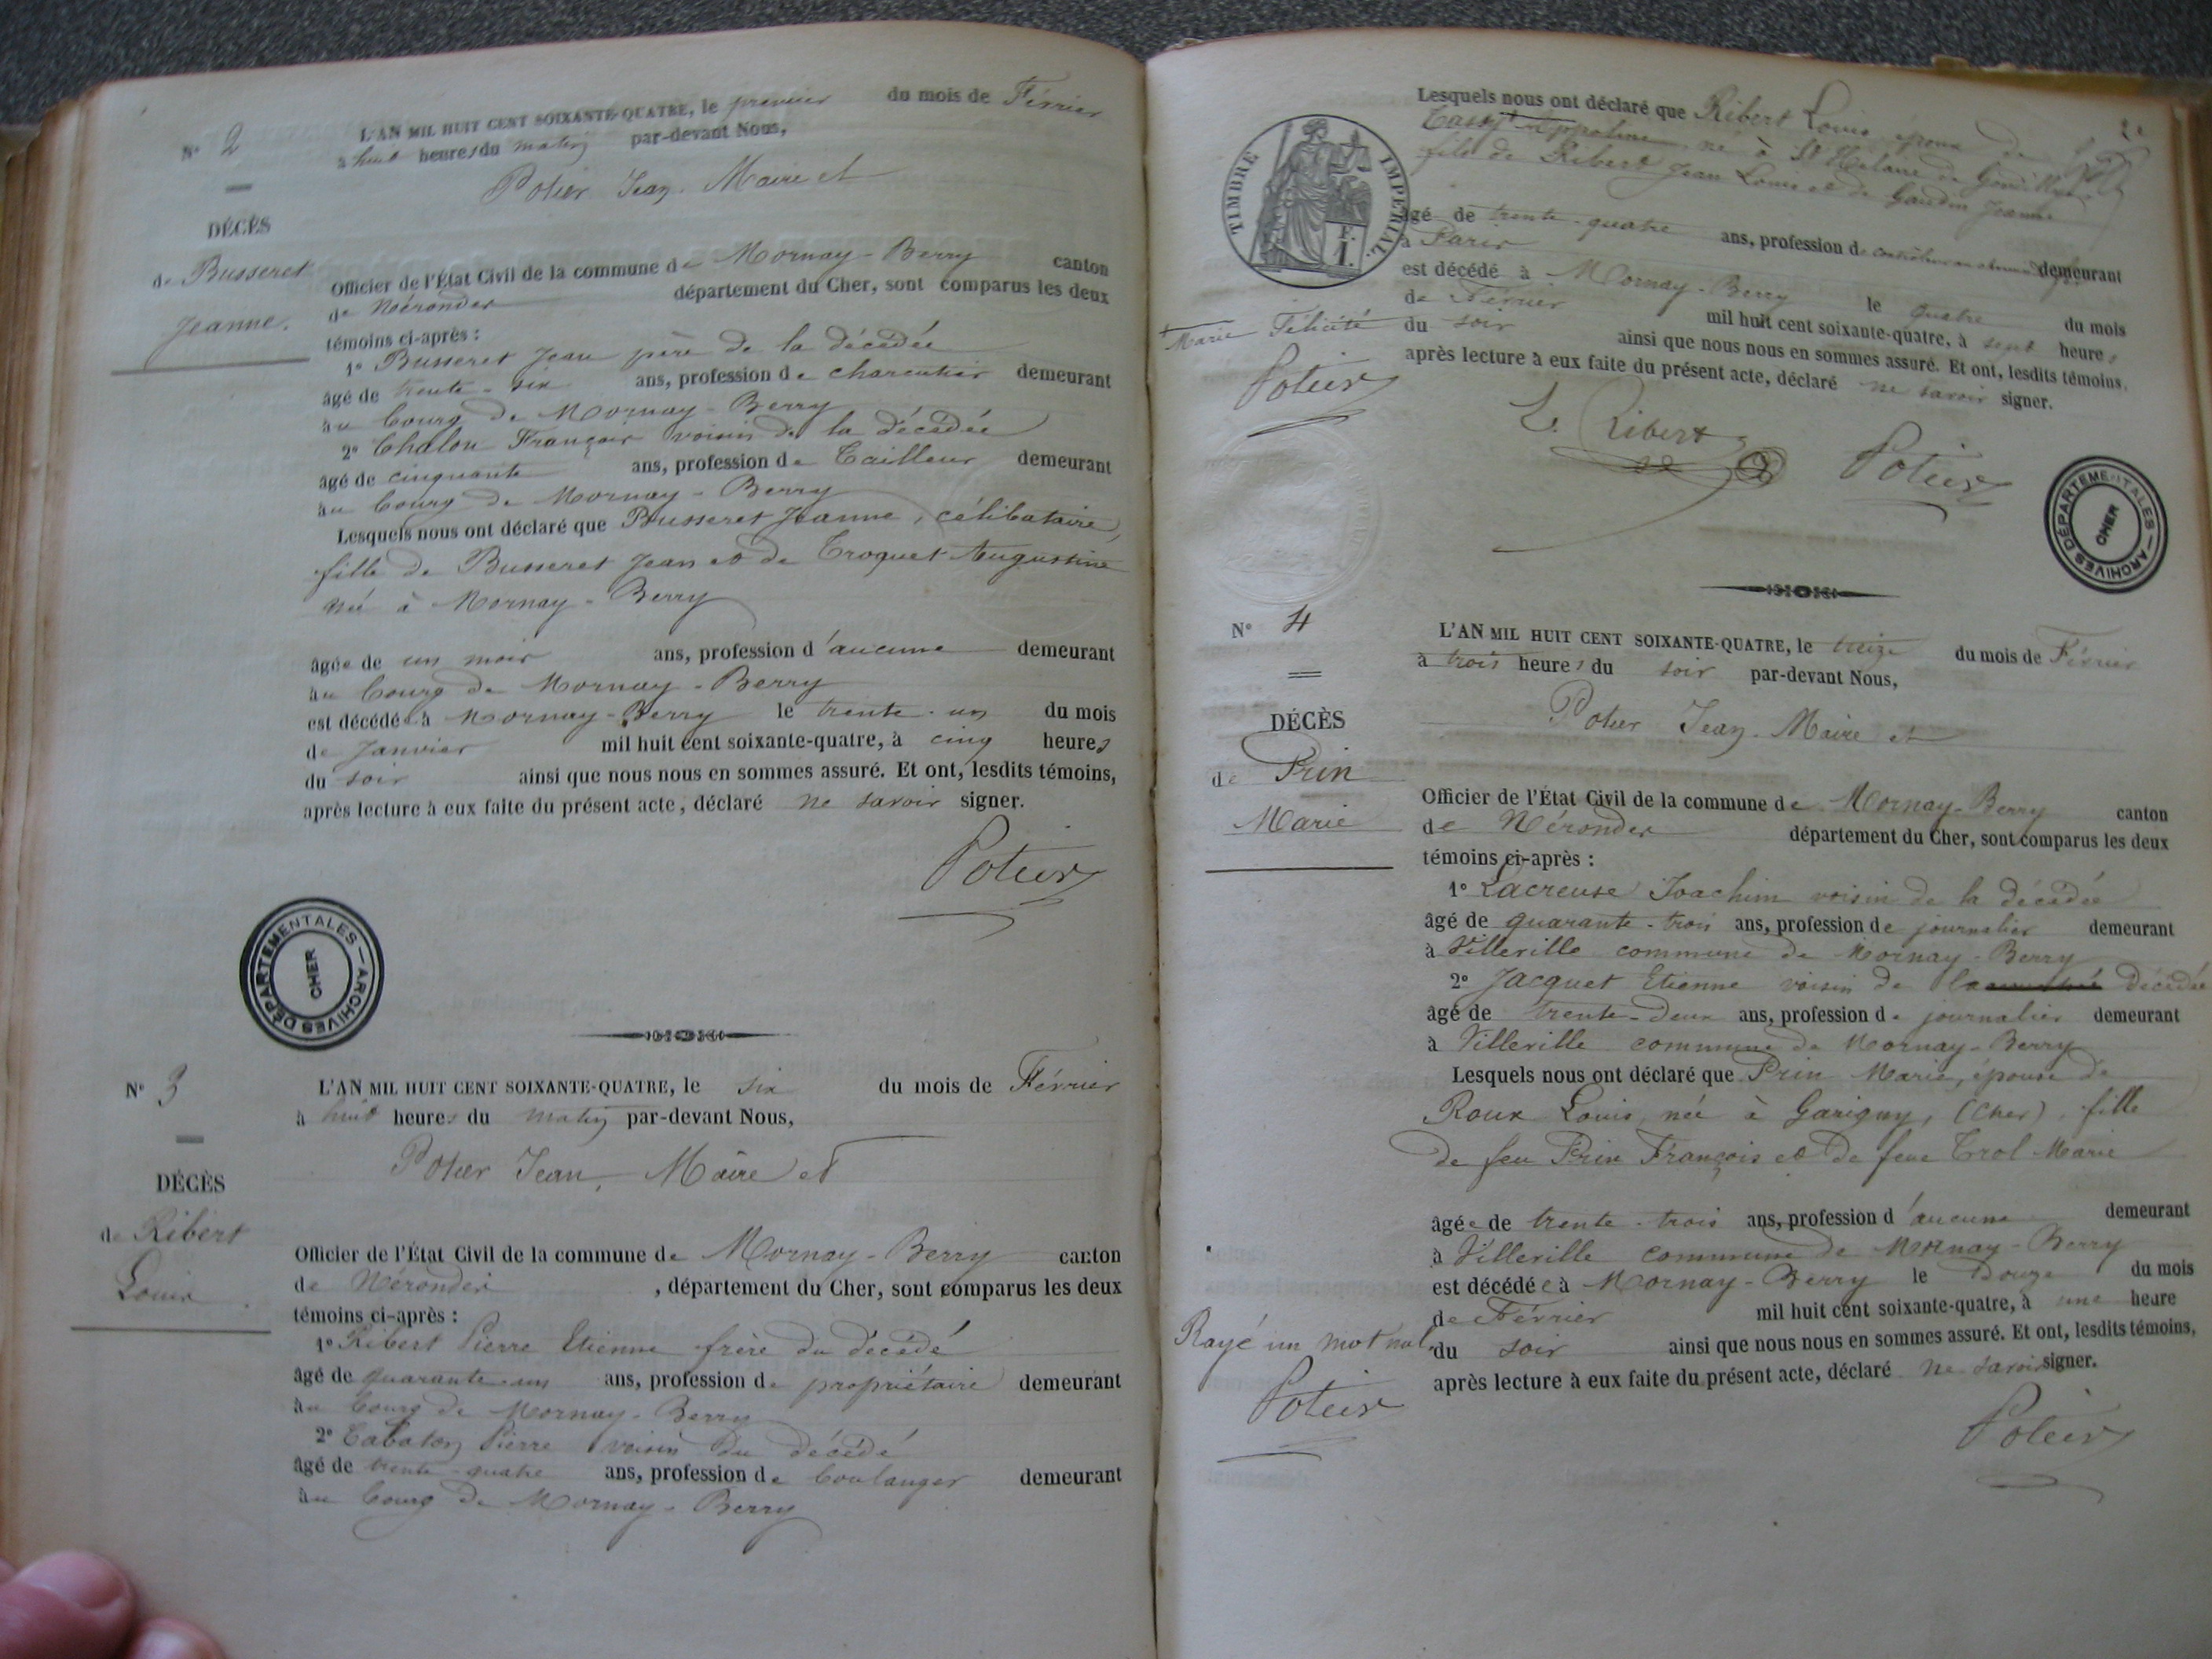 N° 2
DÉCÈS
de Busseret
Jeanne.
L'AN MIL HUIT CENT SOIXANTE-QUATRE, le premier du mois de Février
à huit heures du matin par-devant Nous,
Potier Jean, Maire et
Officier de l'État Civil de la commune de Mornay-Berry canton
de Nérondes département du Cher, sont comparus les deux
témoins ci-après :
1° Busseret Jean père de la décédée
âgé de trente-six ans, profession de charcutier demeurant
au bourg de Mornay-Berry
2° Chalou François voisin de la décédée
âgé de cinquante ans, profession de tailleur demeurant
au bourg de Mornay-Berry
Lesquels nous ont déclaré que Busseret Jeanne, célibataire,
fille de Busseret Jean et de Croquet Augustine
née à Mornay-Berry
âgée de un mois ans, profession d'aucune demeurant
au bourg de Mornay-Berry
est décédée à Mornay-Berry le trente-un du mois
de Janvier mil huit cent soixante-quatre, à cinq heures
du soir ainsi que nous nous en sommes assuré. Et ont, lesdits témoins,
après lecture à eux faite du présent acte, déclaré ne savoir signer.
Potier
ARCHIVES DÉPARTEMENTALES
CHER
N° 3
DÉCÈS
de Ribert
Louis
L'AN MIL HUIT CENT SOIXANTE-QUATRE, le six du mois de Février
à huit heures du matin par-devant Nous,
Potier Jean, Maire et
Officier de l'État Civil de la commune de Mornay-Berry canton
de Nérondes, département du Cher, sont comparus les deux
témoins ci-après :
1° Ribert Pierre Etienne frère du décédé
âgé de quarante-un ans, profession de propriétaire demeurant
au bourg de Mornay-Berry
2° Cabaton Pierre voisin du décédé
âgé de trente-quatre ans, profession de boulanger demeurant
au bourg de Mornay-Berry
Lesquels nous ont déclaré que Ribert Louis époux de
Appoline né à St Hilaire de
fils de Ribert Jean Louis et de Gaudin Jeanne
TIMBRE IMPÉRIAL
F. I.
âgé de trente-quatre ans, profession de demeurant
à Paris
est décédé à Mornay-Berry le quatre du mois
de Février mil huit cent soixante-quatre, à sept heures
du soir ainsi que nous nous en sommes assuré. Et ont, lesdits témoins,
après lecture à eux faite du présent acte, déclaré ne savoir signer.
Marie Félicité
Potier
E. Ribert
Potier
ARCHIVES DÉPARTEMENTALES
CHER
N° 4
DÉCÈS
de Prin
Marie
L'AN MIL HUIT CENT SOIXANTE-QUATRE, le treize du mois de Février
à trois heures du soir par-devant Nous,
Potier Jean, Maire et
Officier de l'État Civil de la commune de Mornay-Berry canton
de Nérondes département du Cher, sont comparus les deux
témoins ci-après :
1° Lacreuse Joachim voisin de la décédée
âgé de quarante-trois ans, profession de journalier demeurant
à Villeville commune de Mornay-Berry
2° Jacquet Etienne voisin de la décédée
âgé de trente-deux ans, profession de journalier demeurant
à Villeville commune de Mornay-Berry
Lesquels nous ont déclaré que Prin Marie, épouse de
Roux Louis, née à Garigny, (Cher), fille
de feu Prin François et de feue Crol Marie
âgée de trente-trois ans, profession d'aucune demeurant
à Villeville commune de Mornay-Berry
est décédée à Mornay-Berry le douze du mois
de Février mil huit cent soixante-quatre, à une heure
du soir ainsi que nous nous en sommes assuré. Et ont, lesdits témoins,
après lecture à eux faite du présent acte, déclaré ne savoir signer.
Rayé un mot nul
Potier
Potier